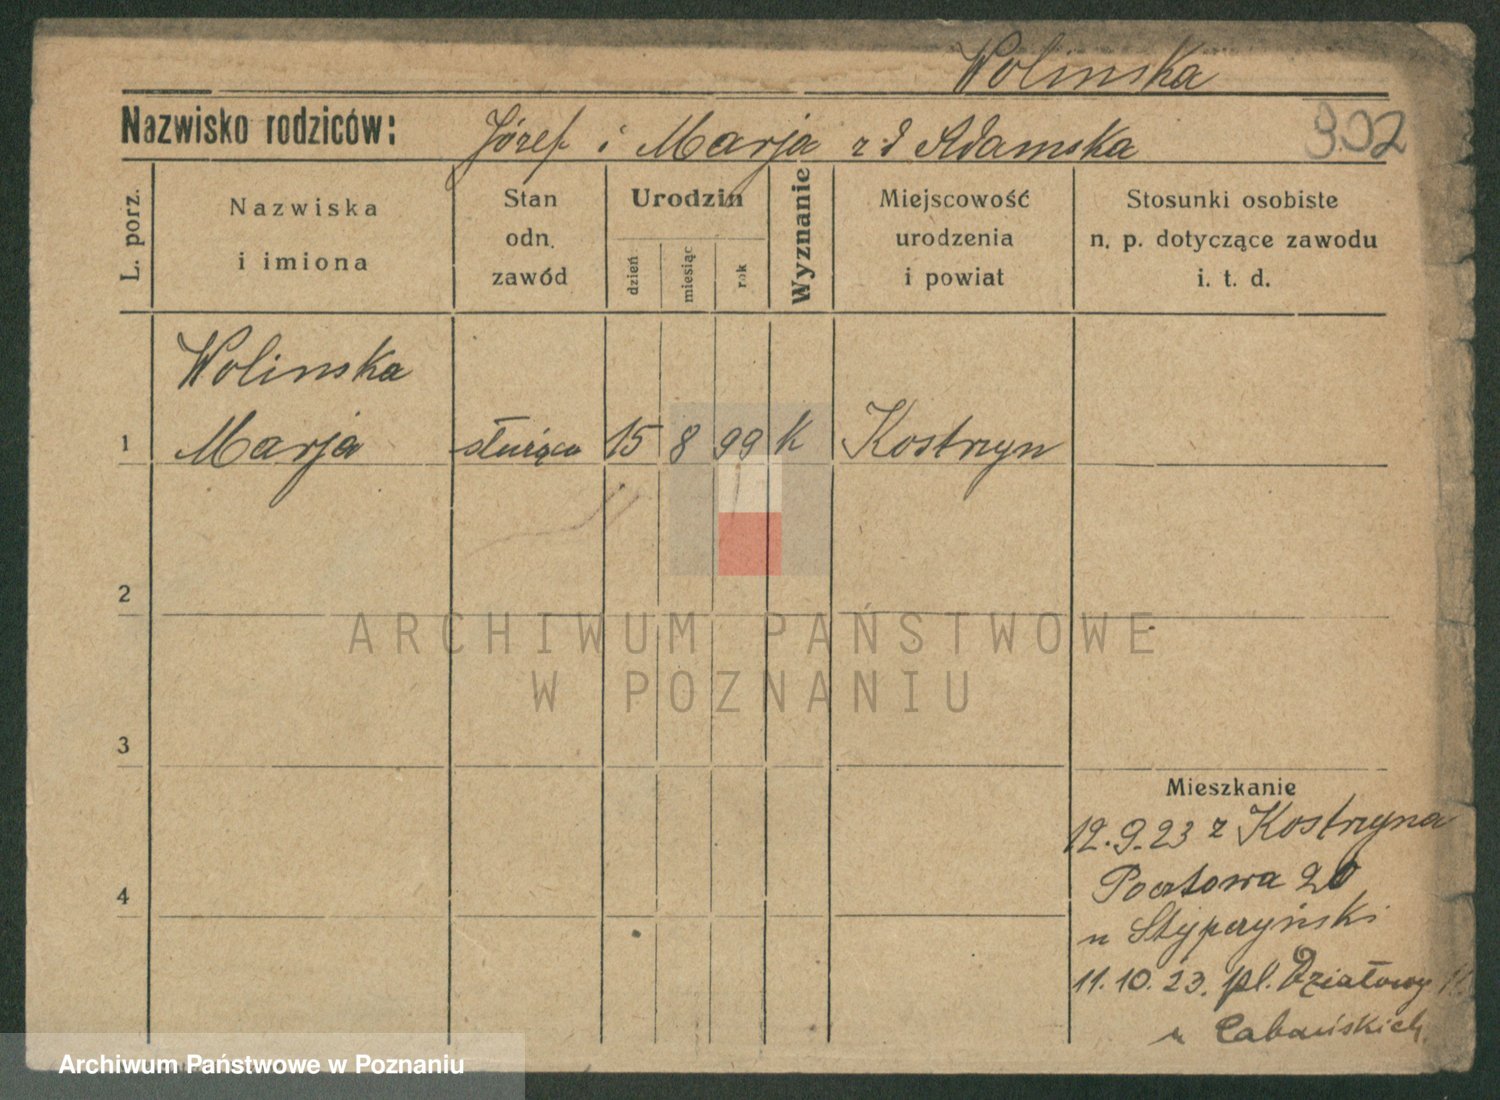 Wolinska
Nazwisko rodziców: Józef i Marja z d Adamska
902
L. porz.
Nazwiska
i imiona
Stan
odn.
zawód
Urodzin
dzień
miesiąc
rok
Wyznanie
Miejscowość
urodzenia
i powiat
Stosunki osobiste
n. p. dotyczące zawodu
i. t. d.
Wolinska
1 Marja służąca 15 8 99 k Kostrzyn
2
ARCHIWUM PAŃSTWOWE
W POZNANIU
3
Mieszkanie
12.9.23 z Kostrzyna
4
Pocztowa 20
u Stypczyński
11.10.23. pl. Działowy
u Cabańskich
Archiwum Państwowe w Poznaniu